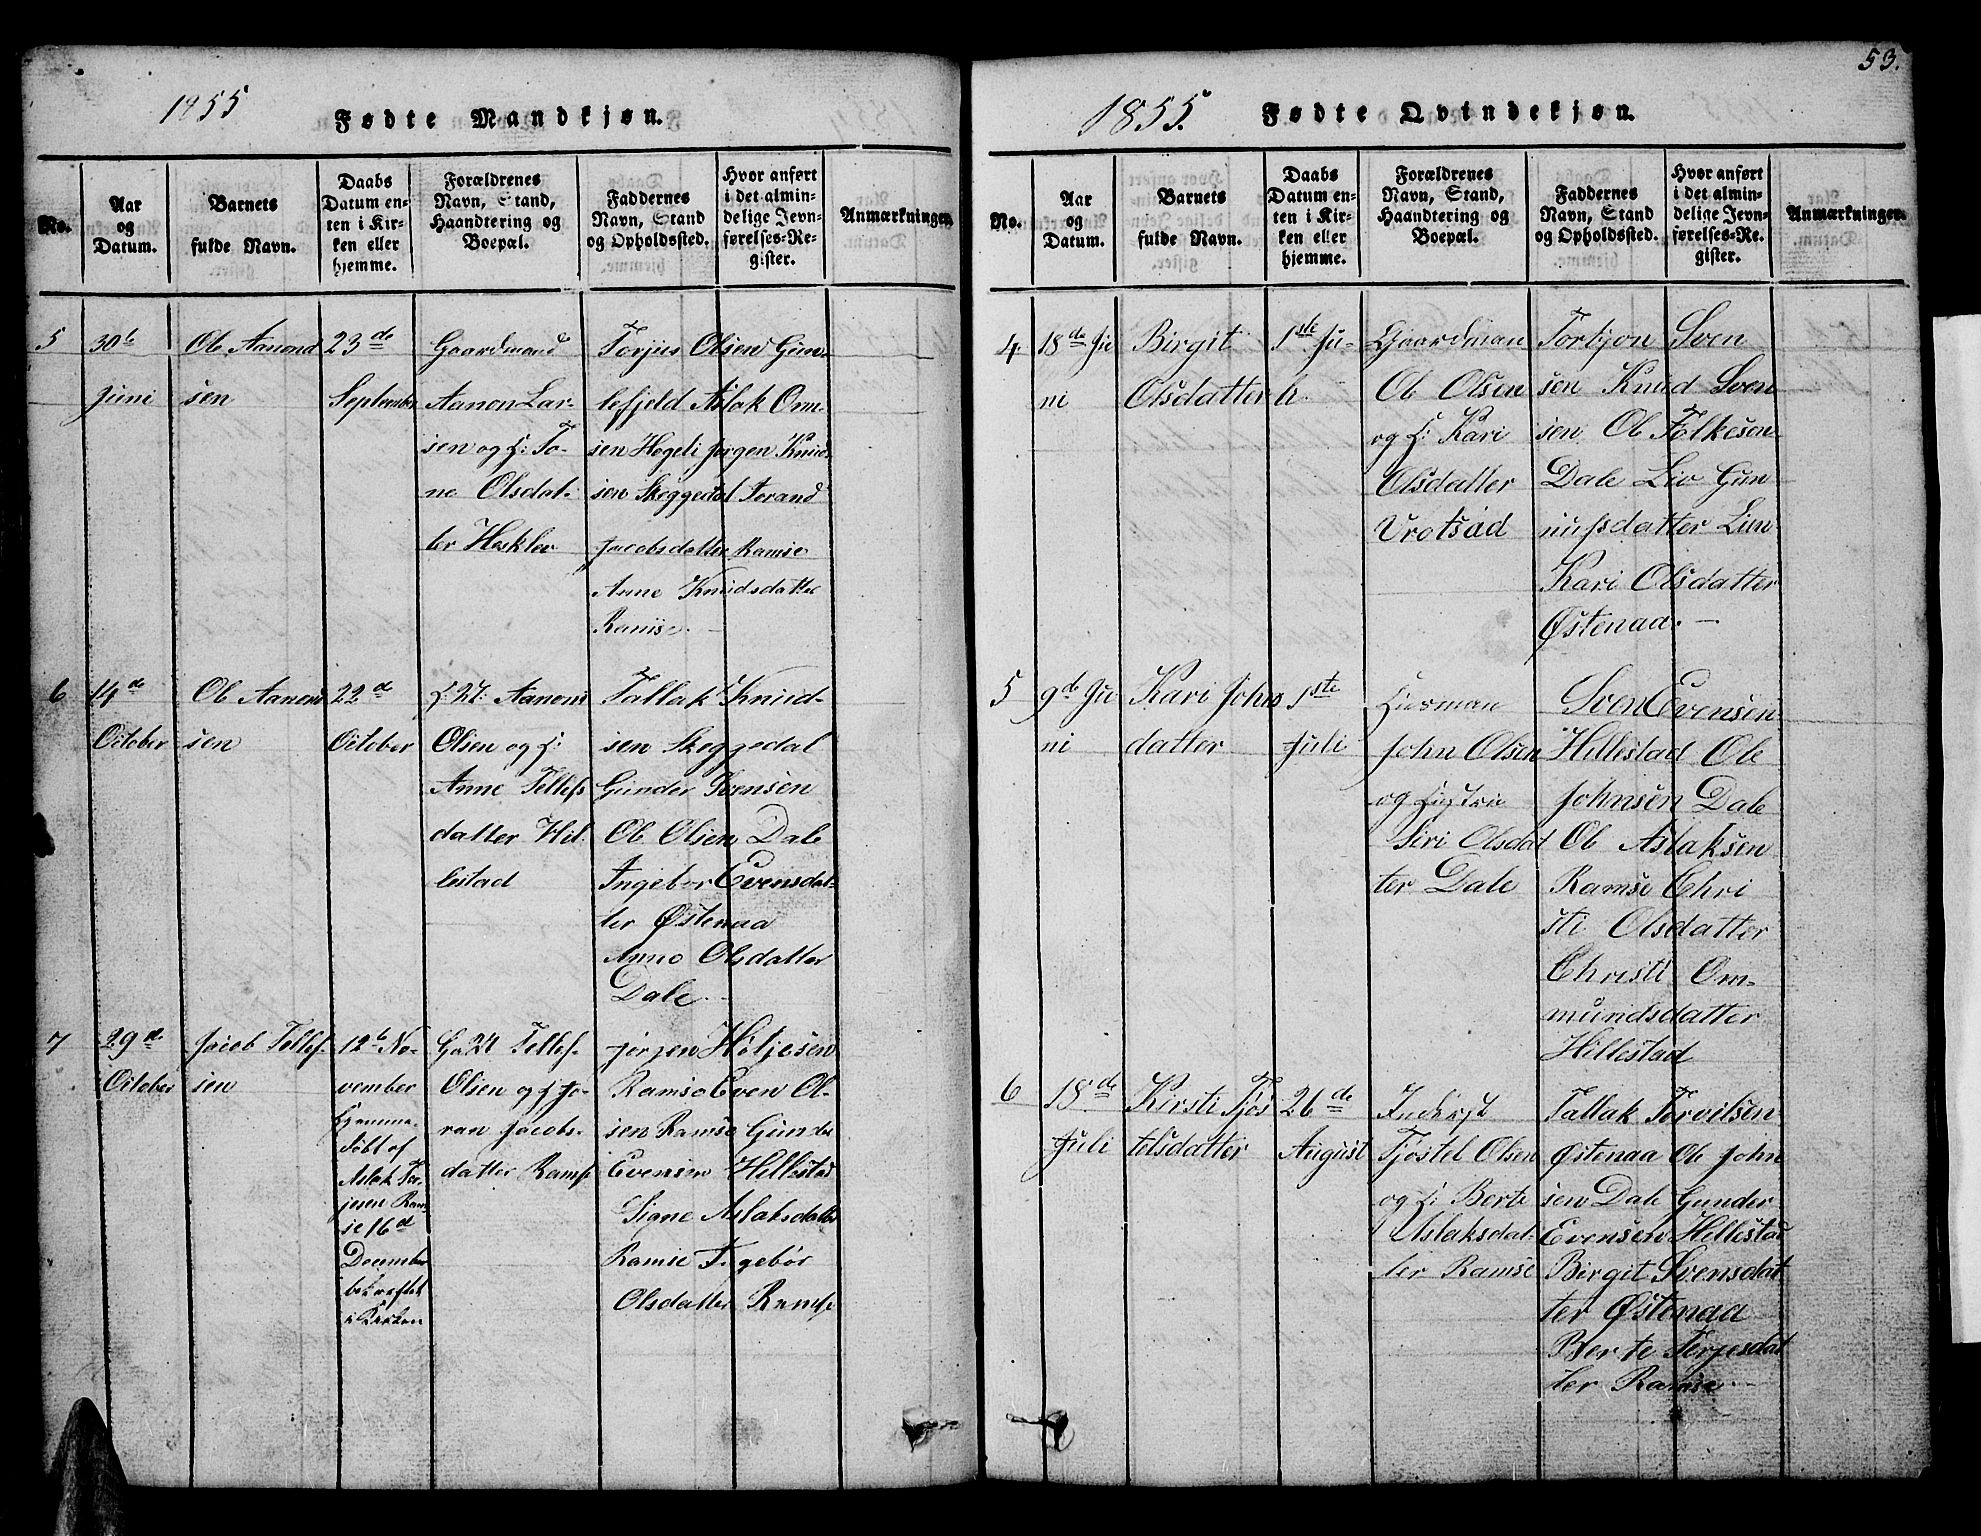 1855 Fødte Mandkjøn.
No.
Aar og Datum.
Barnets fulde Navn.
Daabs Datum enten i Kirken eller hjemme.
Forældrenes Navn, Stand, Haandtering og Boepæl.
Faddernes Navn, Stand og Opholdssted.
Hvor anført i det almindelige Jevnførelses-Register.
Anmærkninger.
5
30te
Juni
Ole Aanond
sen
23de
September
Gaardmand
Aanon Lar-
sen og To-
ne Olsdat-
ter
Torjus Olsen Gun-
lefjeld Aslak Om-
sen Hegeli Jørgen Knud-
sen Skeggedal Jorand
Jacobsdatter Ramse
Anne Knudsdatter
Ramse
6
14de
October
Ole Aanon
sen
22de
October
Aanons
Olsen og
Anne Tellefs
datter Hil-
lestad
Tallak Knud-
sen Skeggedal
Gunder Svensen
Ole Olsen Dale
Ingebor Evensdat-
ter Østenaa
Anne Olsdatter
Dale
7
29de
October
Jacob Tellef-
sen
12te No-
vember
Hjemme-
døbt af
Aslak Ter-
jesen Ram-
se 16d
December
bekræftet
i Kirken
Tellef-
Olsen og Jo-
ran Jacobs-
datter Ramse
Jørgen Høljesen
Ramse Even Ol-
sen Ramse Gunder
Evensen Hillestad
Signe Aslaksdatter
Ramse Ingebør
Olsdatter Ramse
53.
1855. Fødte Qvindekjøn.
No.
Aar og Datum.
Barnets fulde Navn.
Daabs Datum enten i Kirken eller hjemme.
Forældrenes Navn, Stand, Haandtering og Boepæl.
Faddernes Navn, Stand og Opholdssted.
Hvor anført i det almindelige Jevnførelses-Register.
Anmærkninger.
4
18de Ju
ni
Birgit
Olsdatter
1ste Ju-
li
Gaardman
Ole Olsen
og Kari
Olsdatter
Vrotsad
Torbjon Sven
sen Knud Sven
sen Ole Folkesen
Dale Liv Gun
nufsdatter Lien
Kari Olsdatter
Østenaa.
5
9de Ju
ni
Kari Johns
datter
1ste
Juli
Husman
John Olsen
og Hustrue
Siri Olsdat
ter Dale
Sven Evensen
Hillestad Ole
Johnsen Dale
Ole Aslaksen
Ramse Chri
sti Olsdatter
Christi Om-
mundsdatter
Hillestad
6
18de
Juli
Kirsti Tjøs
telsdatter
26de
August
Inderst
Tjøstel Olsen
og Berte
Aslaksdat-
ter Ramse
Tallak Torvilsen
Østenaa Ole John
sen Dale Gunder
Evensen Hillestad
Birgit Svensdat
ter Østenaa
Berte Terjesdat
ter Ramse